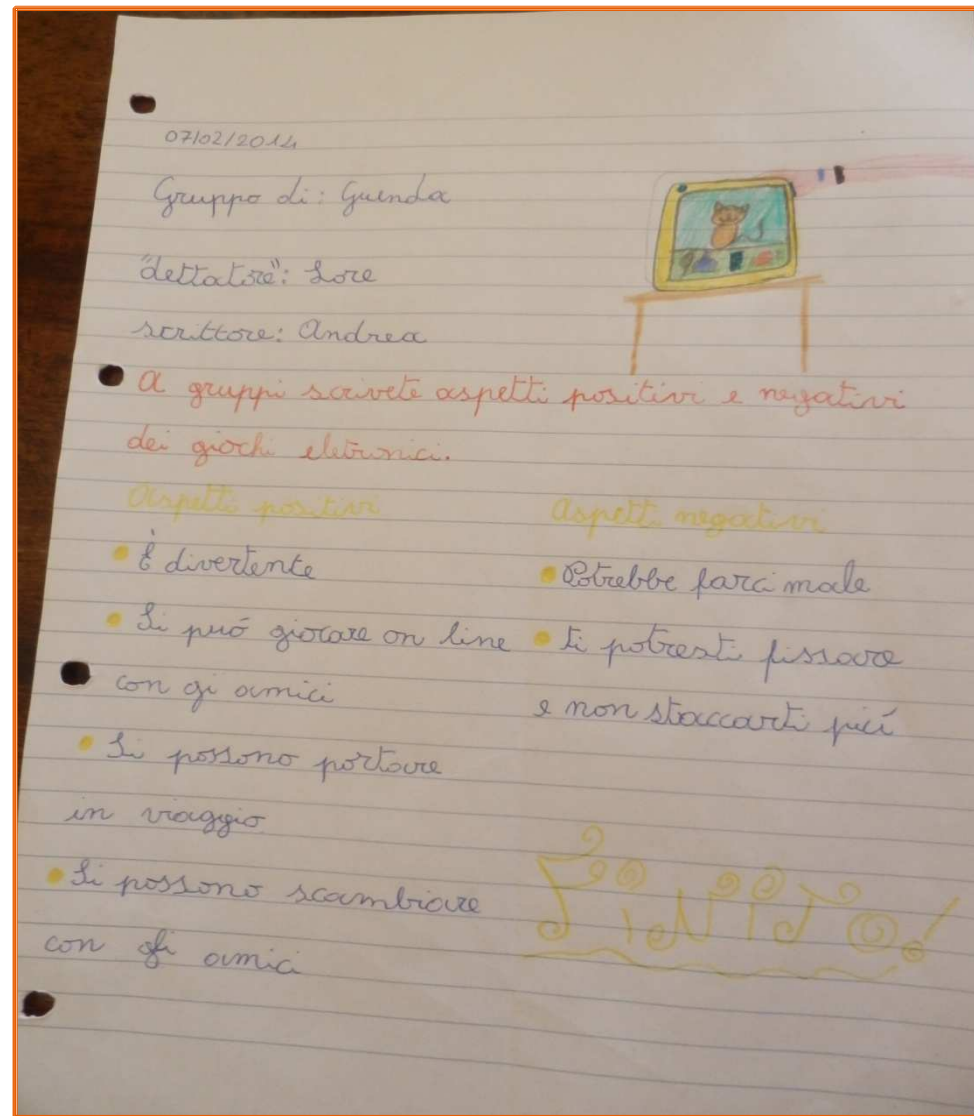 07/02/2014
Gruppo di: Guenda
"dettatore": Lore
scrittore: Andrea
A gruppi scrivete aspetti positivi e negativi
dei giochi eletronici.
Aspetti positivi
• È divertente
• Si può giocare on line
con gi amici
• Si possono portare
in viaggio
• Si possono scambiare
con gli amici
Aspetti negativi
• Potrebbe farci male
• ti potresti fissare
e non staccarti più
FINITO!